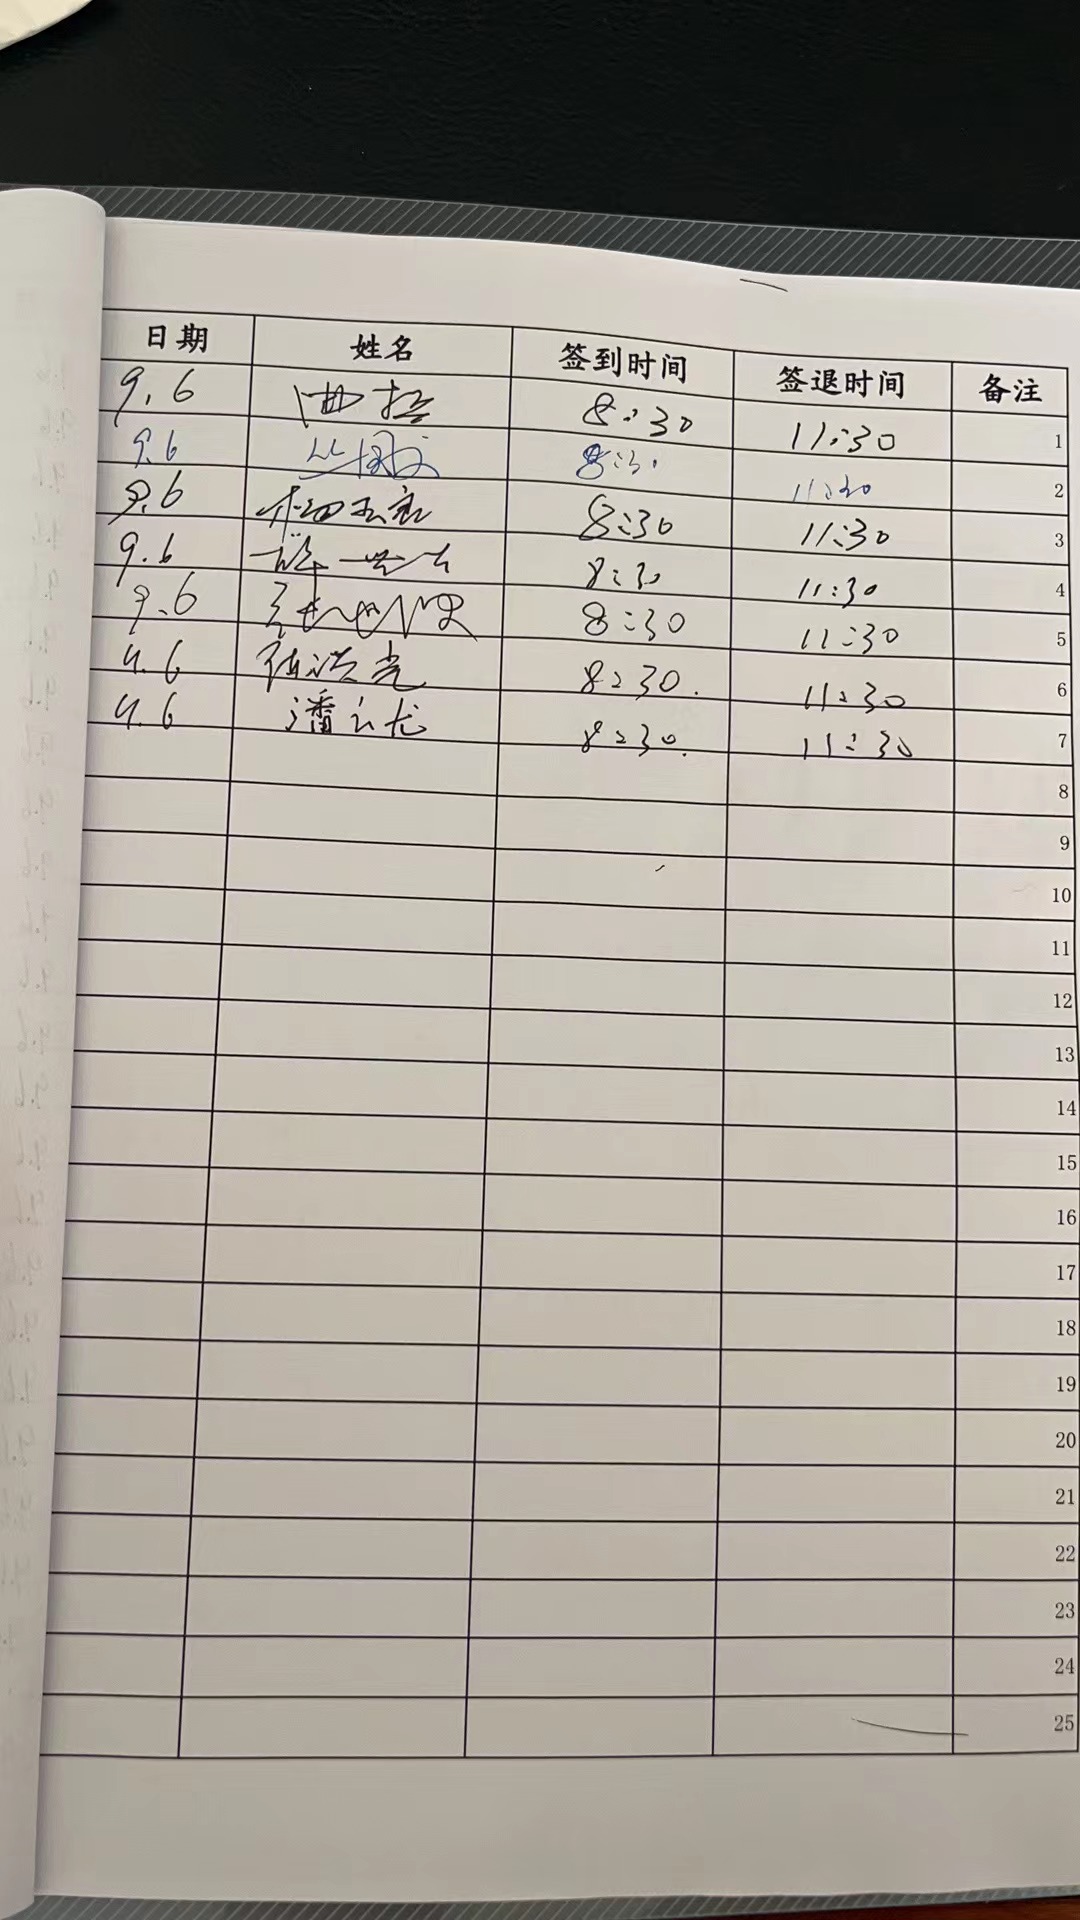 日期 姓名 签到时间 签退时间 备注
9.6 8:30 11:30 1
9.6 8:30 11:30 2
9.6 8:30 11:30 3
9.6 8:30 11:30 4
9.6 8:30 11:30 5
9.6 8:30. 11:30 6
9.6 潘 龙 8:30. 11:30 7
8
9
10
11
12
13
14
15
16
17
18
19
20
21
22
23
24
25